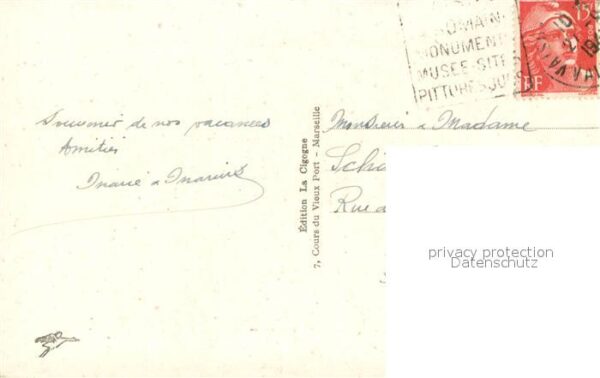 ROMAIN
MONUMENT
MUSEE-SITE
PITTORESQUE
15F
RF
Souvenir de nos vacances
Amitiés
Marie & Marius
Édition La Cigogne
7, Cours du Vieux Port - Marseille
Monsieur & Madame
Rue
privacy protection
Datenschutz